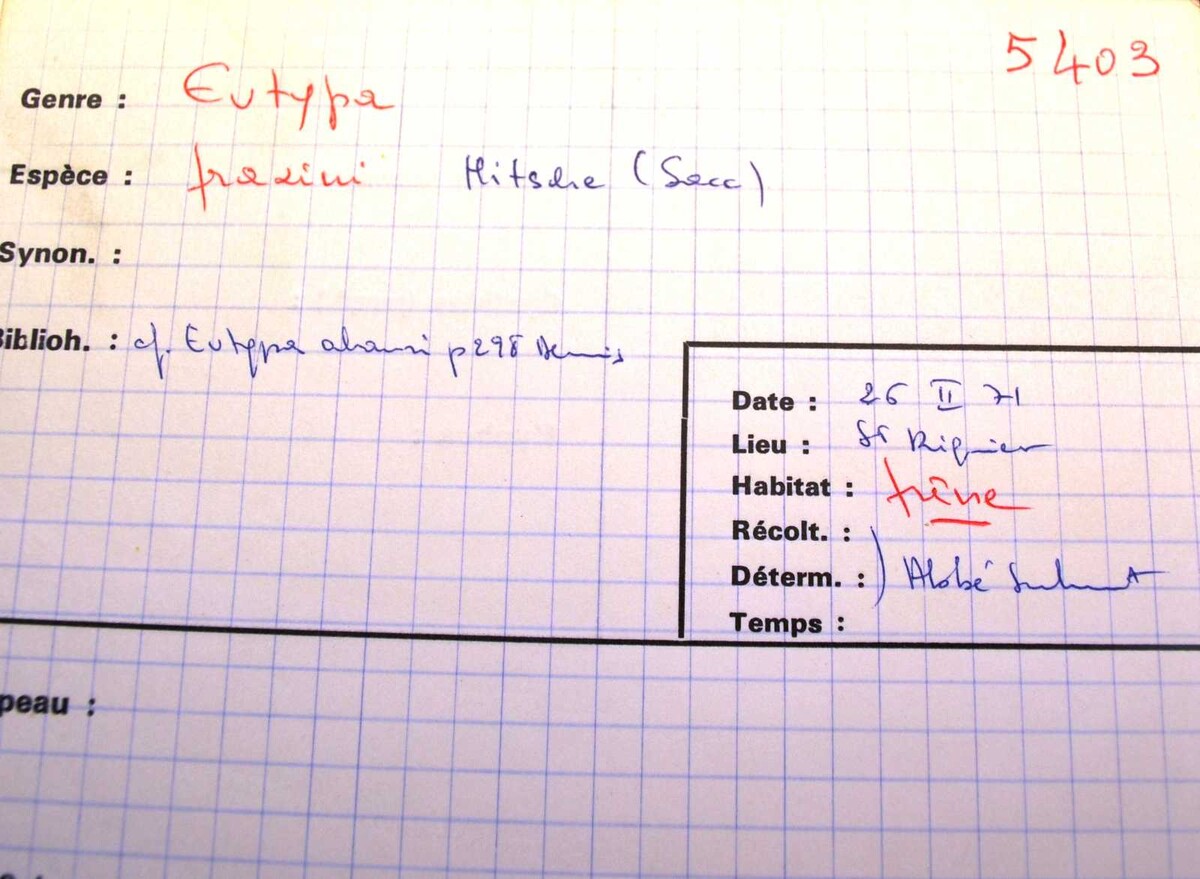 5403
Genre : Eutypa
Espèce : fraxini Nitsche (Sacc)
Synon. :
Biblioh. : cf. Eutypa p 298 Dennis
Date : 26 II 71
Lieu : St Riquier
Habitat : frêne
Récolt. :
Déterm. : ) Abbé
Temps :
peau :